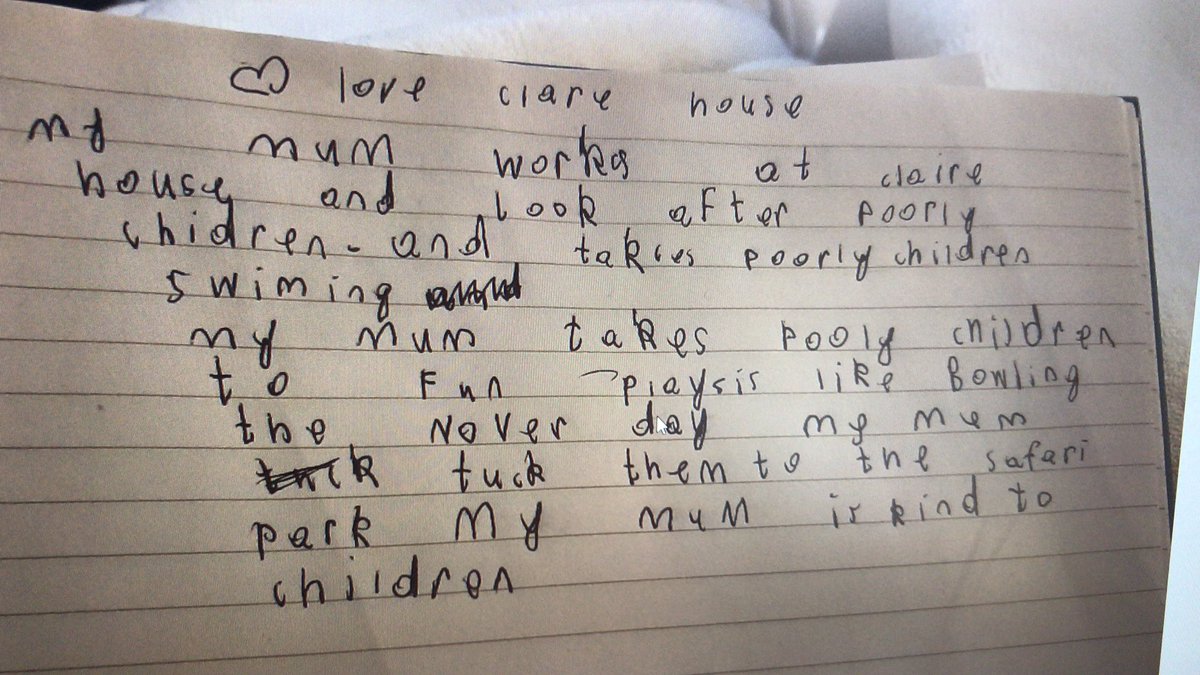 ♡ love clare house
my mum works at claire
house and look after poorly
chidren - and takies poorly children
swiming
my mum takes pooly children
to Fun playsis like Bowling
the Nover day my mum
tuck them to the safari
park my mum is kind to
children